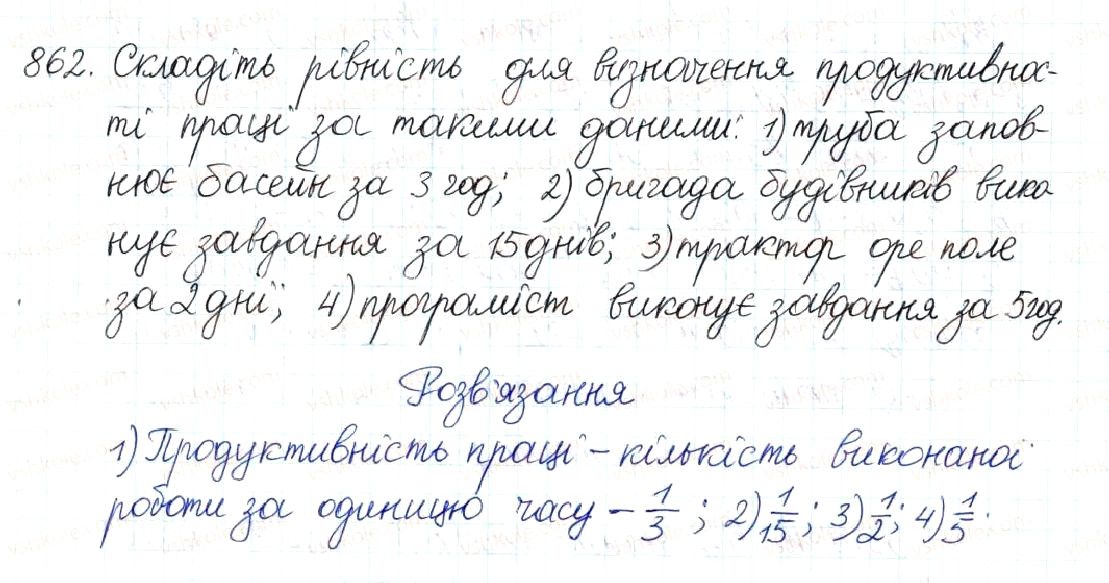 862. Складіть рівність для визначення продуктивнос-
ті праці за такими даними: 1) труба запов-
нює басейн за 3 год; 2) бригада будівників вико-
нує завдання за 15 днів; 3) трактор оре поле
за 2 дні; 4) програміст виконує завдання за 5 год.
Розв'язання
1) Продуктивність праці – кількість виконаної
роботи за одиницю часу – 1/3; 2) 1/15; 3) 1/2; 4) 1/5.